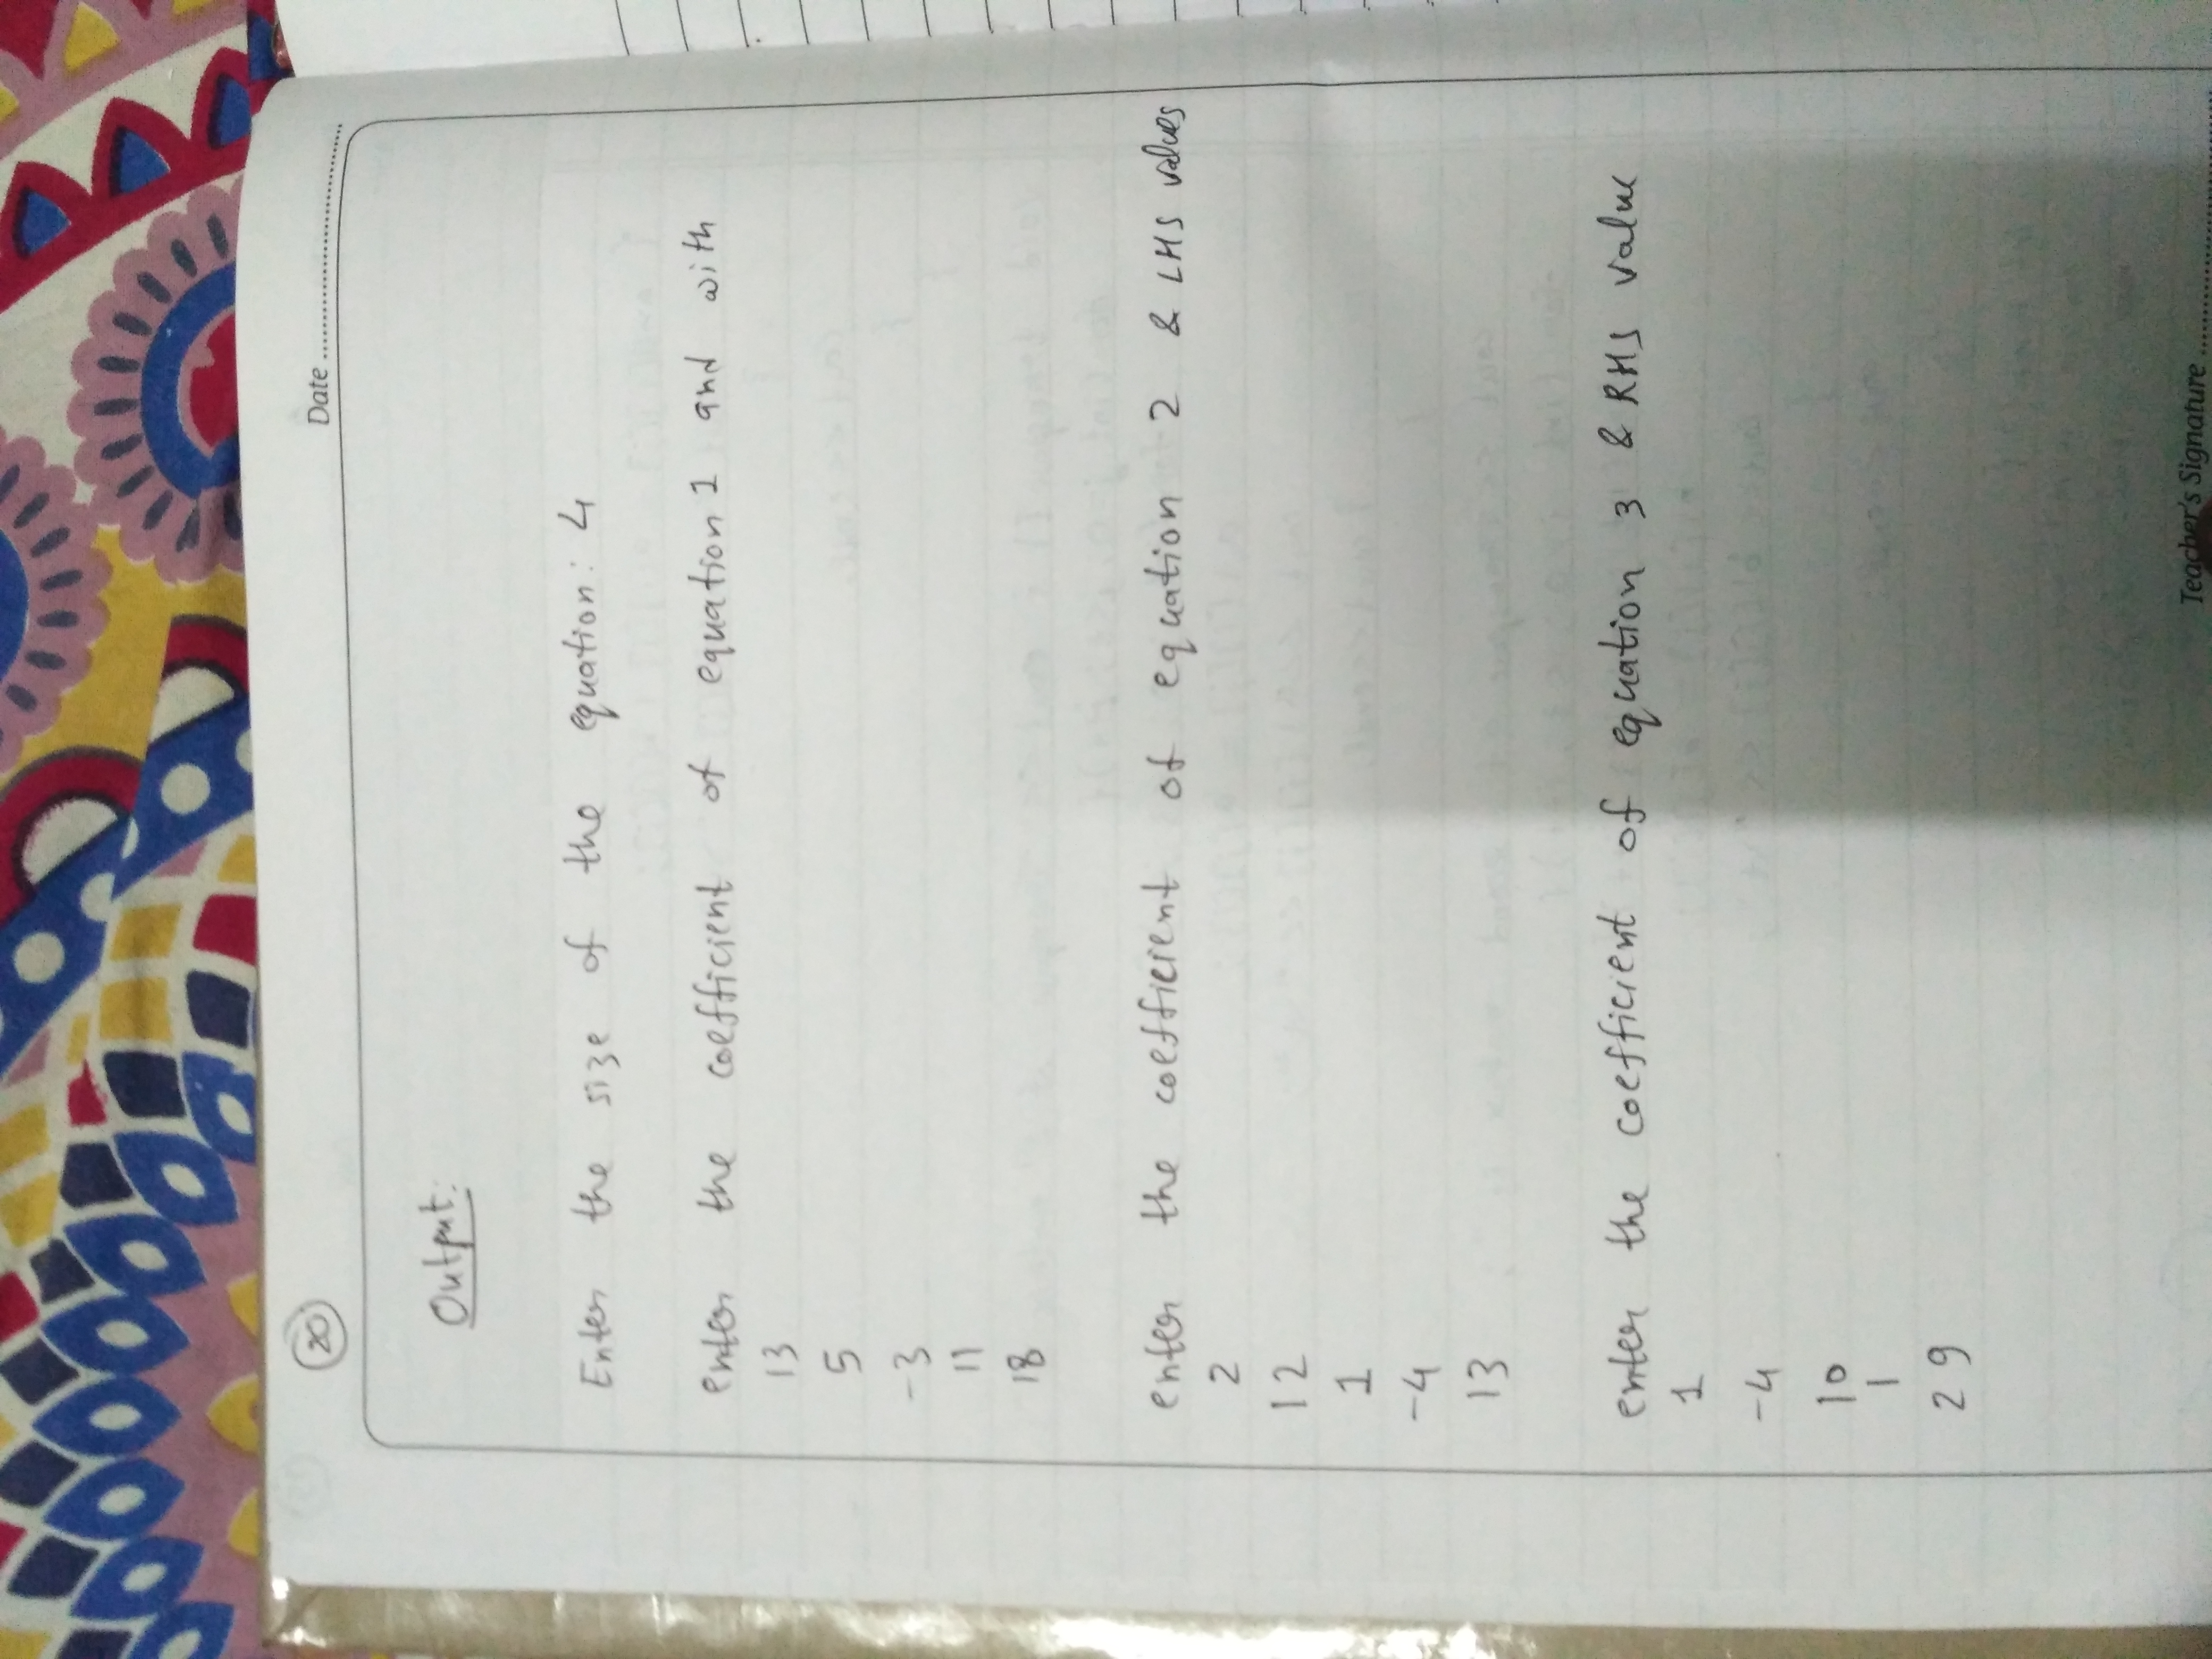 20
Date
Output:
Enter the size of the equation: 4
enter the coefficient of equation 1 and with
13
5
-3
11
18
enter the coefficient of equation 2 & LHS values
2
12
1
-4
13
enter the coefficient of equation 3 & RHS value
1
-4
10
1
29
Teacher's Signature